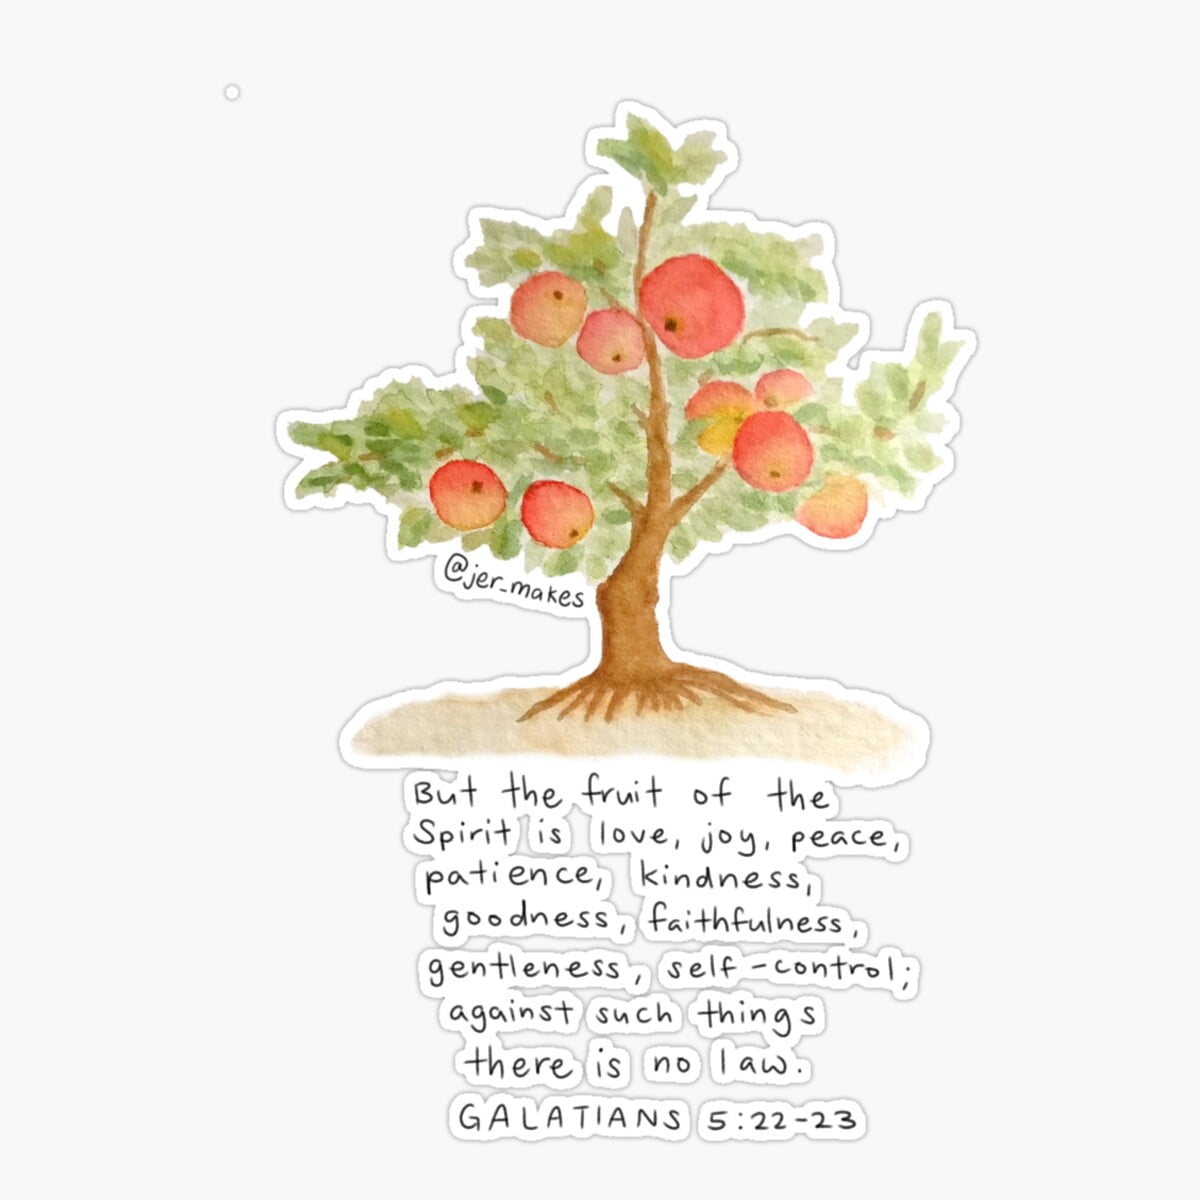 @jer_makes
But the fruit of the
Spirit is love, joy, peace,
patience, kindness,
goodness, faithfulness,
gentleness, self-control;
against such things
there is no law.
GALATIANS 5:22-23